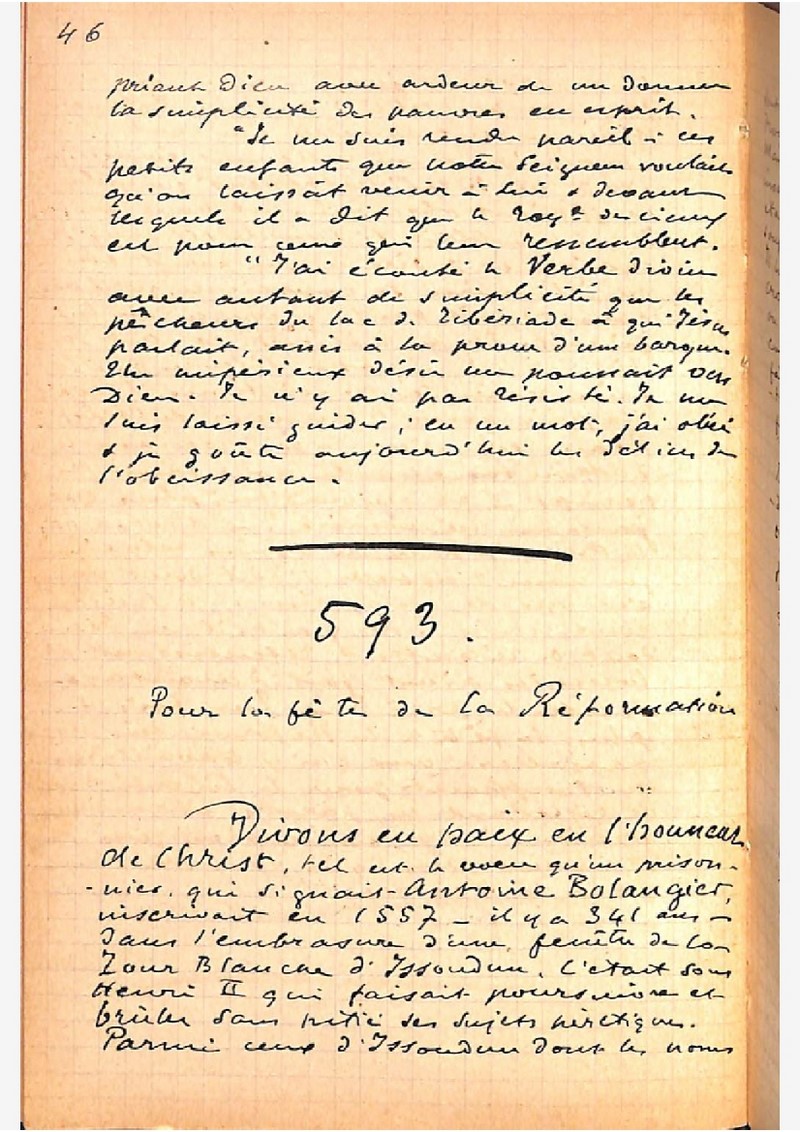 46
priant Dieu avec ardeur de me donner
la simplicité des pauvres en esprit.
"Je me suis rendu pareil à ces
petits enfants que notre Seigneur voulait
qu'on laissât venir à lui & devant
lesquels il a dit que le royᵉ des cieux
est pour ceux qui leur ressemblent.
"J'ai écouté le Verbe divin
avec autant de simplicité que les
pêcheurs du lac de Tibériade à qui Jésus
parlait, assis à la proue d'une barque.
Un impérieux désir me poussait vers
Dieu. Je n'y ai pas résisté. Je me
suis laissé guider ; en un mot, j'ai obéi
& je goûte aujourd'hui les délices de
l'obéissance.
593.
Pour la fête de la Réformation
Vivons en paix en l'honneur
de Christ, tel est le voeu qu'un prison-
-nier, qui signait Antoine Bolangier,
inscrivait en 1557 _ il y a 341 ans _
dans l'embrasure d'une fenêtre de la
Tour Blanche d'Issoudun. C'était sous
Henri II qui faisait poursuivre et
brûler sans pitié ses sujets hérétiques.
Parmi ceux d'Issoudun dont les noms